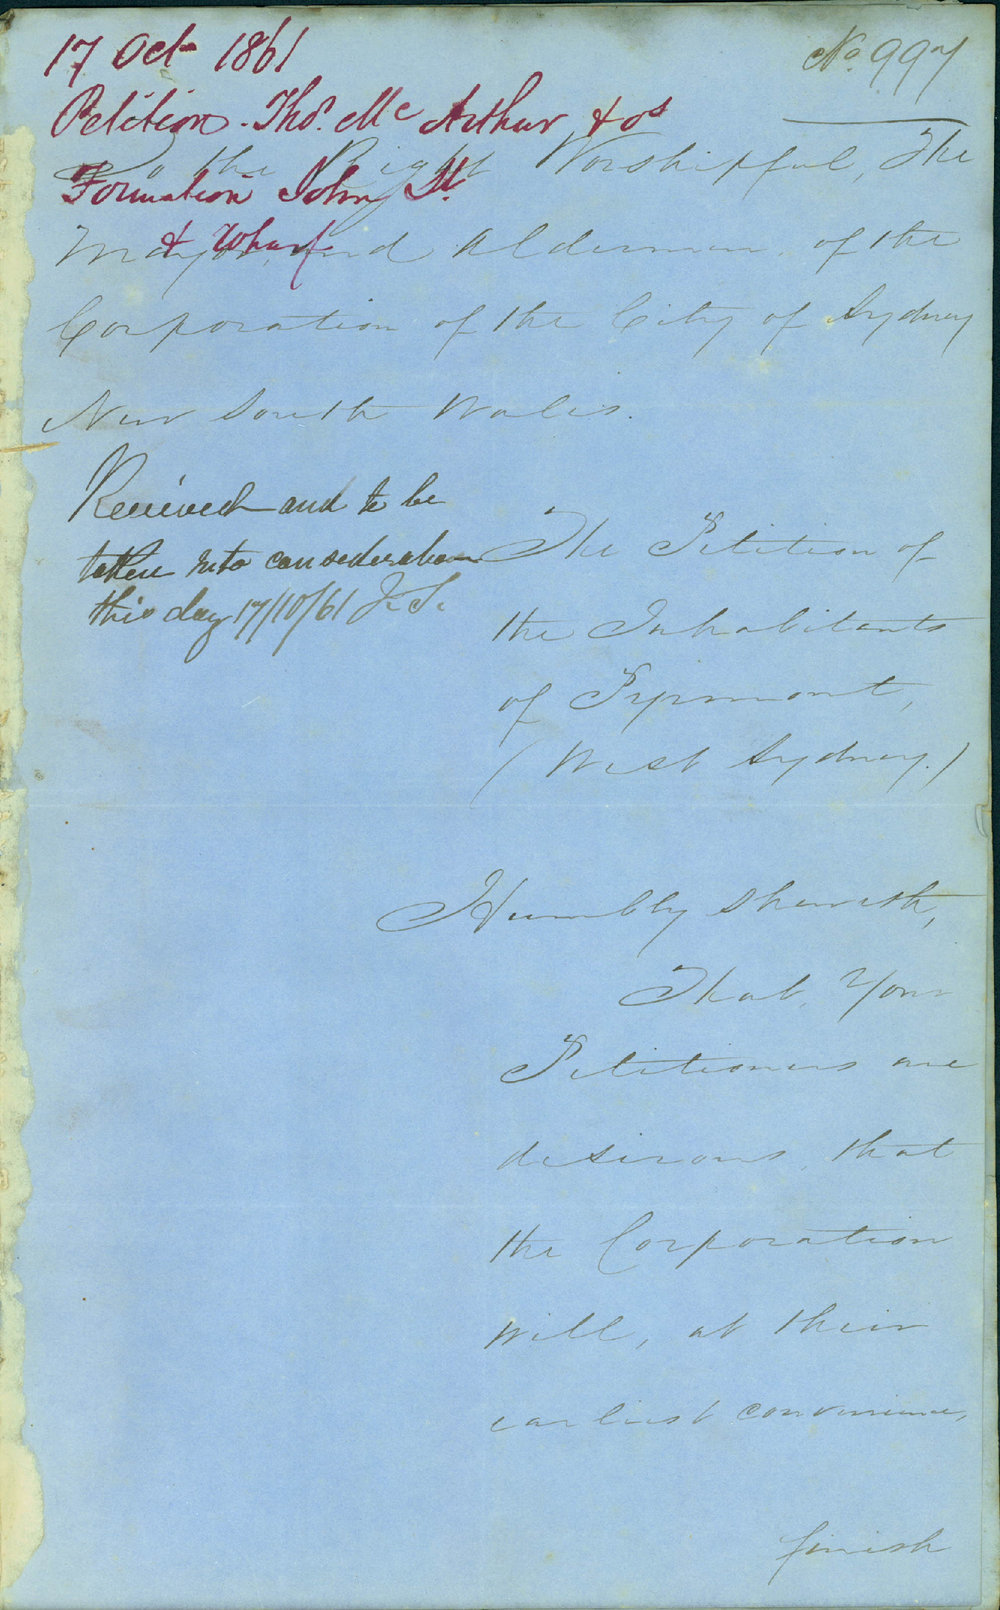 17 Oct 1861
No. 997
Petition. Thos. McArthur & ors
Formation John St.
& Wharf
To the Right Worshipful, The
Mayor, and Alderman, of the
Corporation of the City of Sydney
New South Wales.
Received and to be
taken into consideration
this day 17/10/61 J.S.
The Petition of
the Inhabitants
of Pyrmont,
(West Sydney.)
Humbly sheweth,
That, Your
Petitioners are
desirous, that
the Corporation
will, at their
earliest convenience,
finish